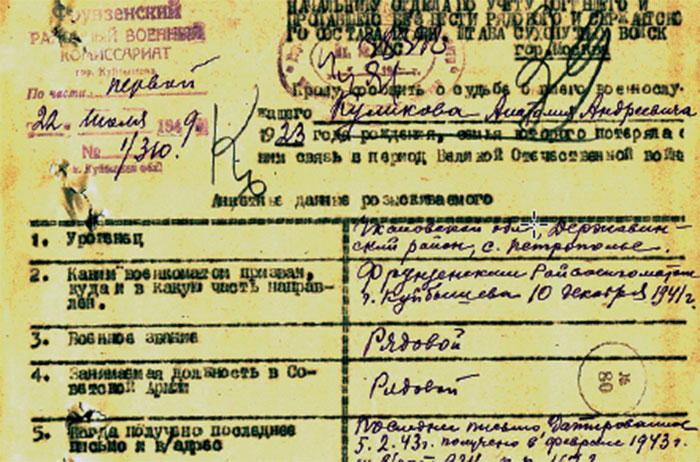 Фрунзенский
РАЙОННЫЙ ВОЕННЫЙ
КОМИССАРИАТ
гор. Куйбышев
По части первой
22 июля 1949г.
№ 1/310.
г. Куйбышев
НАЧАЛЬНИКУ ОТДЕЛА ПО УЧЕТУ ПОГИБШЕГО И
ПРОПАВШЕГО БЕЗ ВЕСТИ РЯДОВОГО И СЕРЖАНТСКО
ГО СОСТАВА ШТАБА СУХОПУТНЫХ ВОЙСК
гор. Москва
Прошу сообщить о судьбе б его военнослу-
жащего Куликова Анатолия Андреевича
1923 года рождения, семья которого потеряла с
ним связь в период Великой Отечественной войн
Анкетные данные розыскиваемого
1. Уроженец
обл. Державин-
ский район, с. Петрополье.
2. Каким военкоматом призван,
куда и в какую часть направ-
лен.
Фрунзенским Райвоенкоматом
г. Куйбышева 10 декабря 1941г.
3. Военное звание
Рядовой
4. Занимаемая должность в Со-
ветской Армии
Рядовой
№
80
5. Когда получено последнее
письмо и адрес
Последнее письмо, датированное
5.2.43г. получено в феврале 1943г.